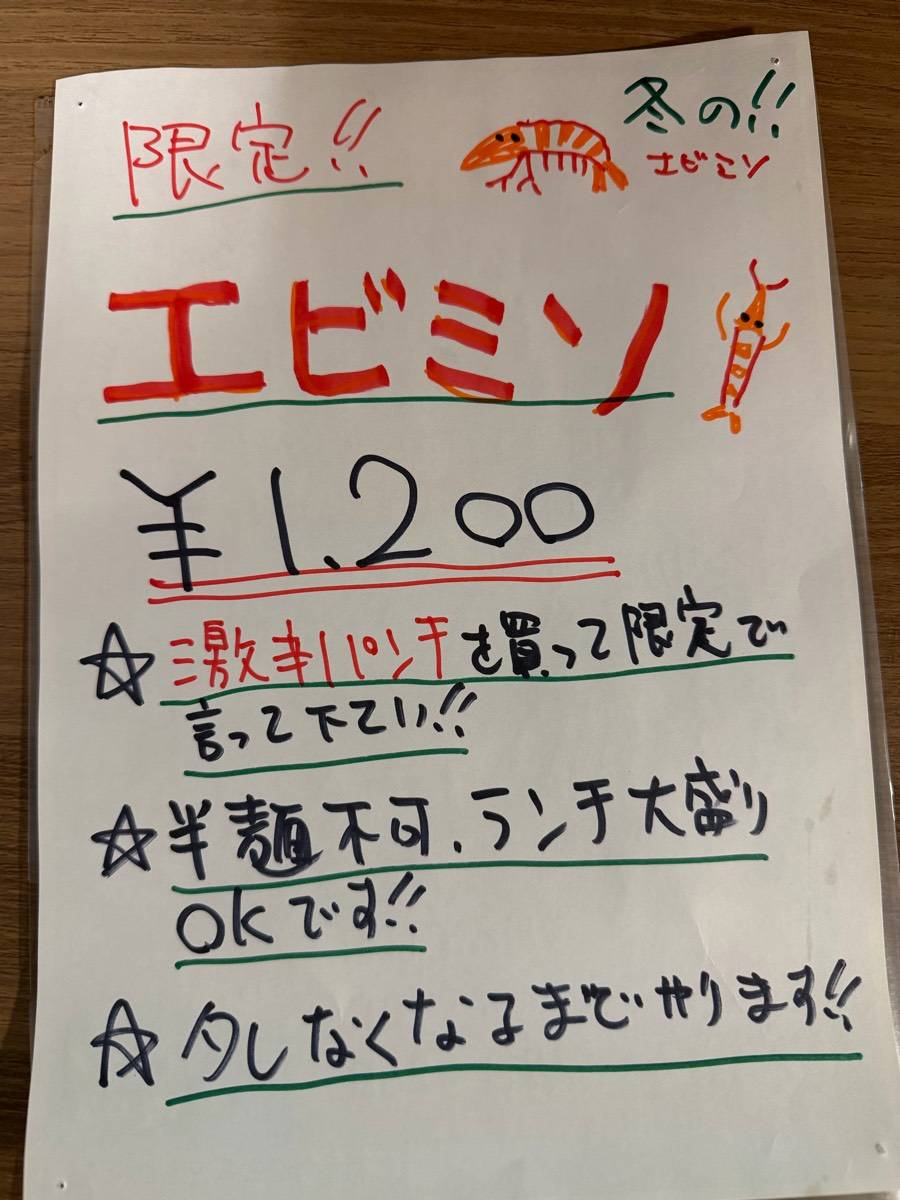 限定!!
冬の!!
エビミソ
エビミソ
¥1.200
☆激辛パンチを買って限定で
言って下さい!!
☆半麺不可、ランチ大盛り
OKです!!
☆タレなくなるまでやります!!